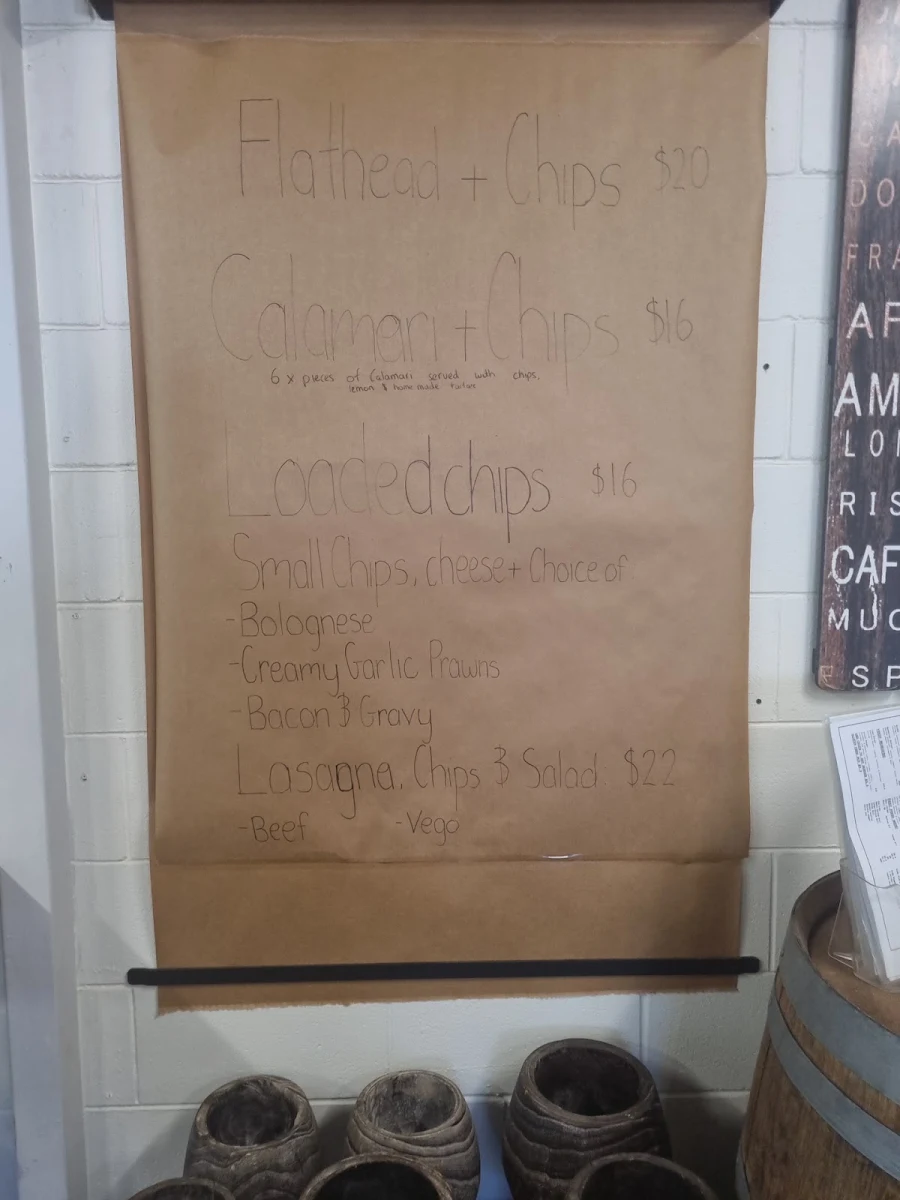 Flathead + Chips $20
Calamari + Chips $16
6 x pieces of Calamari served with chips,
lemon & home made tartare
Loaded chips $16
Small Chips, cheese + Choice of
-Bolognese
-Creamy Garlic Prawns
-Bacon & Gravy
Lasagna, Chips & Salad: $22
-Beef -Vego
DO
FRA
AF
AM
LON
RIS
CAF
MUC
ESP